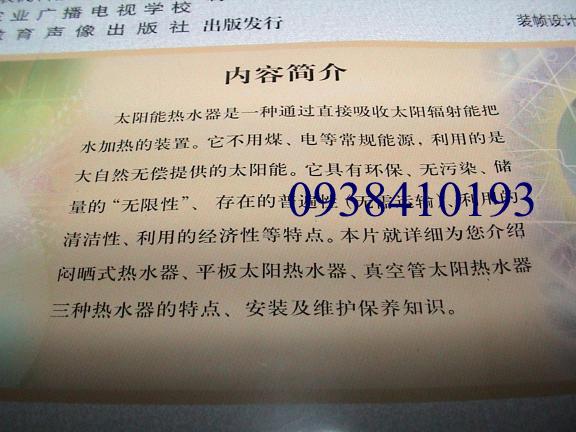 业广播电视学校
育声像出版社 出版发行
装帧设计
内容简介
太阳能热水器是一种通过直接吸收太阳辐射能把
水加热的装置。它不用煤、电等常规能源，利用的是
大自然无偿提供的太阳能。它具有环保、无污染、储
量的“无限性”、存在的普遍性（无需运输）、利用的
0938410193
清洁性、利用的经济性等特点。本片就详细为您介绍
闷晒式热水器、平板太阳热水器、真空管太阳热水器
三种热水器的特点、安装及维护保养知识。